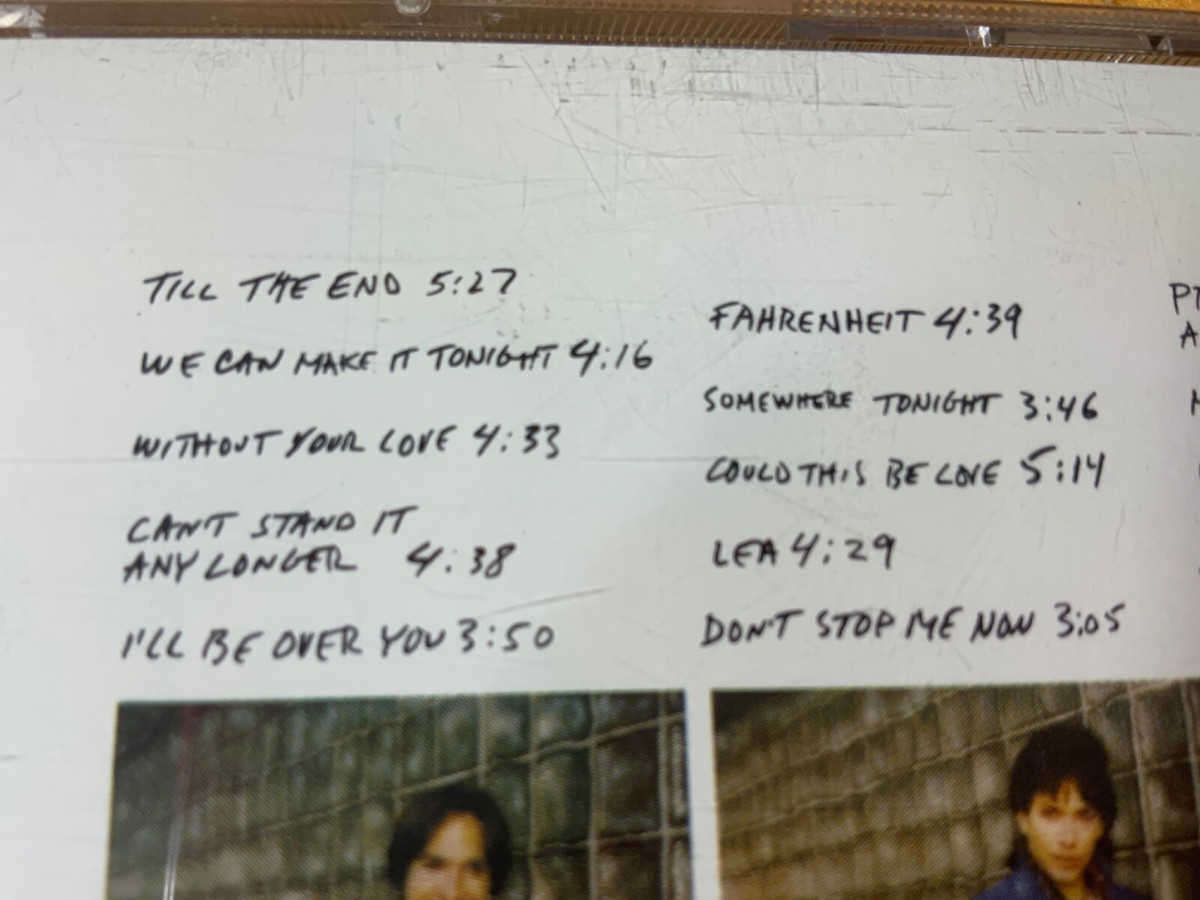 TILL THE END 5:27
WE CAN MAKE IT TONIGHT 4:16
WITHOUT YOUR LOVE 4:33
CAN'T STAND IT
ANY LONGER 4:38
I'LL BE OVER YOU 3:50
FAHRENHEIT 4:39
SOMEWHERE TONIGHT 3:46
COULD THIS BE LOVE 5:14
LEA 4:29
DON'T STOP ME NOW 3:05